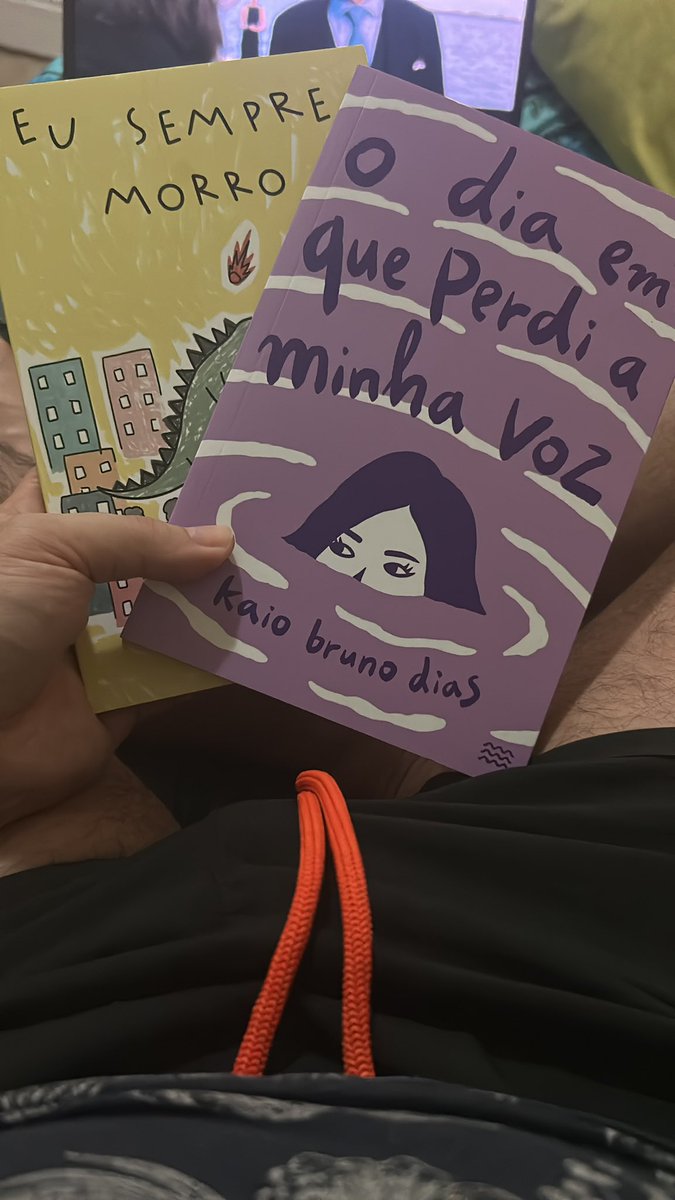 EU SEMPRE
MORRO
o dia em
que Perdi a
minha voz
kaio bruno dias